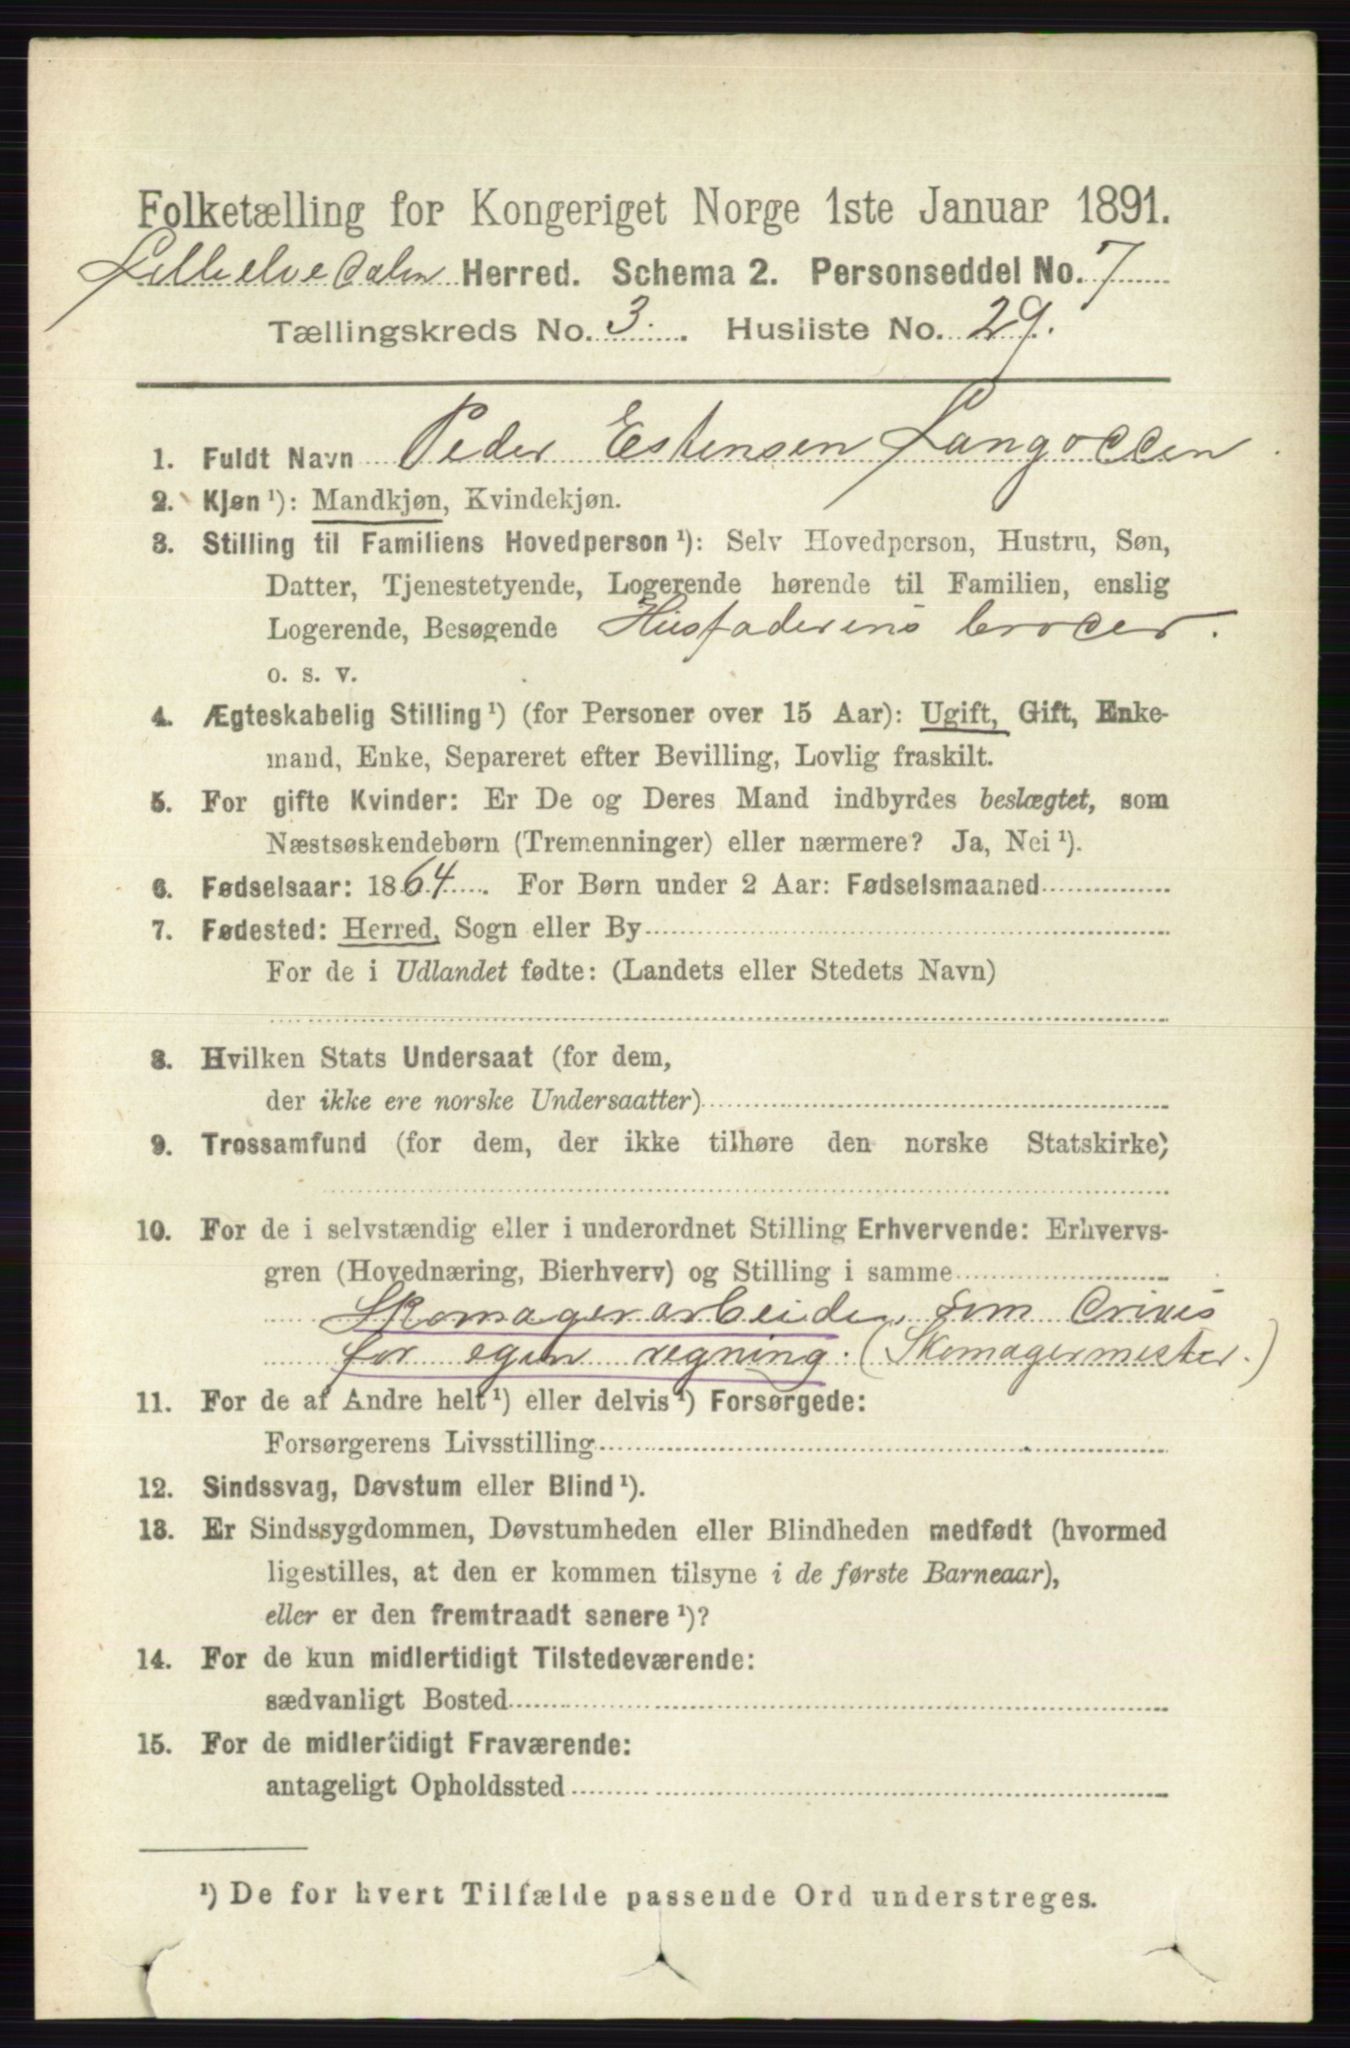 Folketælling for Kongeriget Norge 1ste Januar 1891.
Lilleelvedalen Herred. Schema 2. Personseddel No. 7
Tællingskreds No. 3. Husliste No. 29.
1. Fuldt Navn Peder Estensen Langodden
2. Kjøn ¹): Mandkjøn, Kvindekjøn.
3. Stilling til Familiens Hovedperson ¹): Selv Hovedperson, Hustru, Søn,
Datter, Tjenestetyende, Logerende hørende til Familien, enslig
Logerende, Besøgende Husfaderens broder.
o. s. v.
4. Ægteskabelig Stilling ¹) (for Personer over 15 Aar): Ugift, Gift, Enke-
mand, Enke, Separeret efter Bevilling, Lovlig fraskilt.
5. For gifte Kvinder: Er De og Deres Mand indbyrdes beslægtet, som
Næstsøskendebørn (Tremenninger) eller nærmere? Ja, Nei ¹).
6. Fødselsaar: 1864. For Børn under 2 Aar: Fødselsmaaned
7. Fødested: Herred, Sogn eller By
For de i Udlandet fødte: (Landets eller Stedets Navn)
8. Hvilken Stats Undersaat (for dem,
der ikke ere norske Undersaatter)
9. Trossamfund (for dem, der ikke tilhøre den norske Statskirke)
10. For de i selvstændig eller i underordnet Stilling Erhvervende: Erhvervs-
gren (Hovednæring, Bierhverv) og Stilling i samme
Skomagerarbeide, som drives
for egen regning. (Skomagermester.)
11. For de af Andre helt ¹) eller delvis ¹) Forsørgede:
Forsørgerens Livsstilling
12. Sindssvag, Døvstum eller Blind ¹).
13. Er Sindssygdommen, Døvstumheden eller Blindheden medfødt (hvormed
ligestilles, at den er kommen tilsyne i de første Barneaar),
eller er den fremtraadt senere ¹)?
14. For de kun midlertidigt Tilstedeværende:
sædvanligt Bosted
15. For de midlertidigt Fraværende:
antageligt Opholdssted
¹) De for hvert Tilfælde passende Ord understreges.